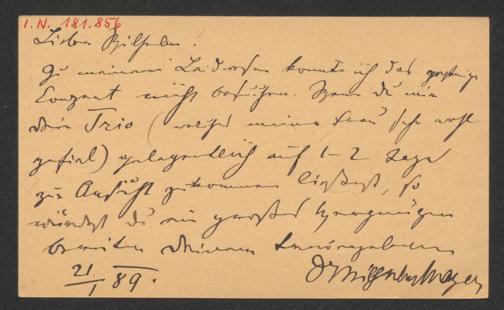 I. N. 181.856
Lieber Wilhelm.
Zu meinem Leidwesen konnte ich das gestrige
Conzert nicht besuchen. Wenn du mir
dein Trio (welches meiner Frau sehr wohl
gefiel) gelegentlich auf 1-2 Tage
zur Ansicht zukommen ließest, so
würdest du ein großes Vergnügen
bereiten deinem
21/1 89.